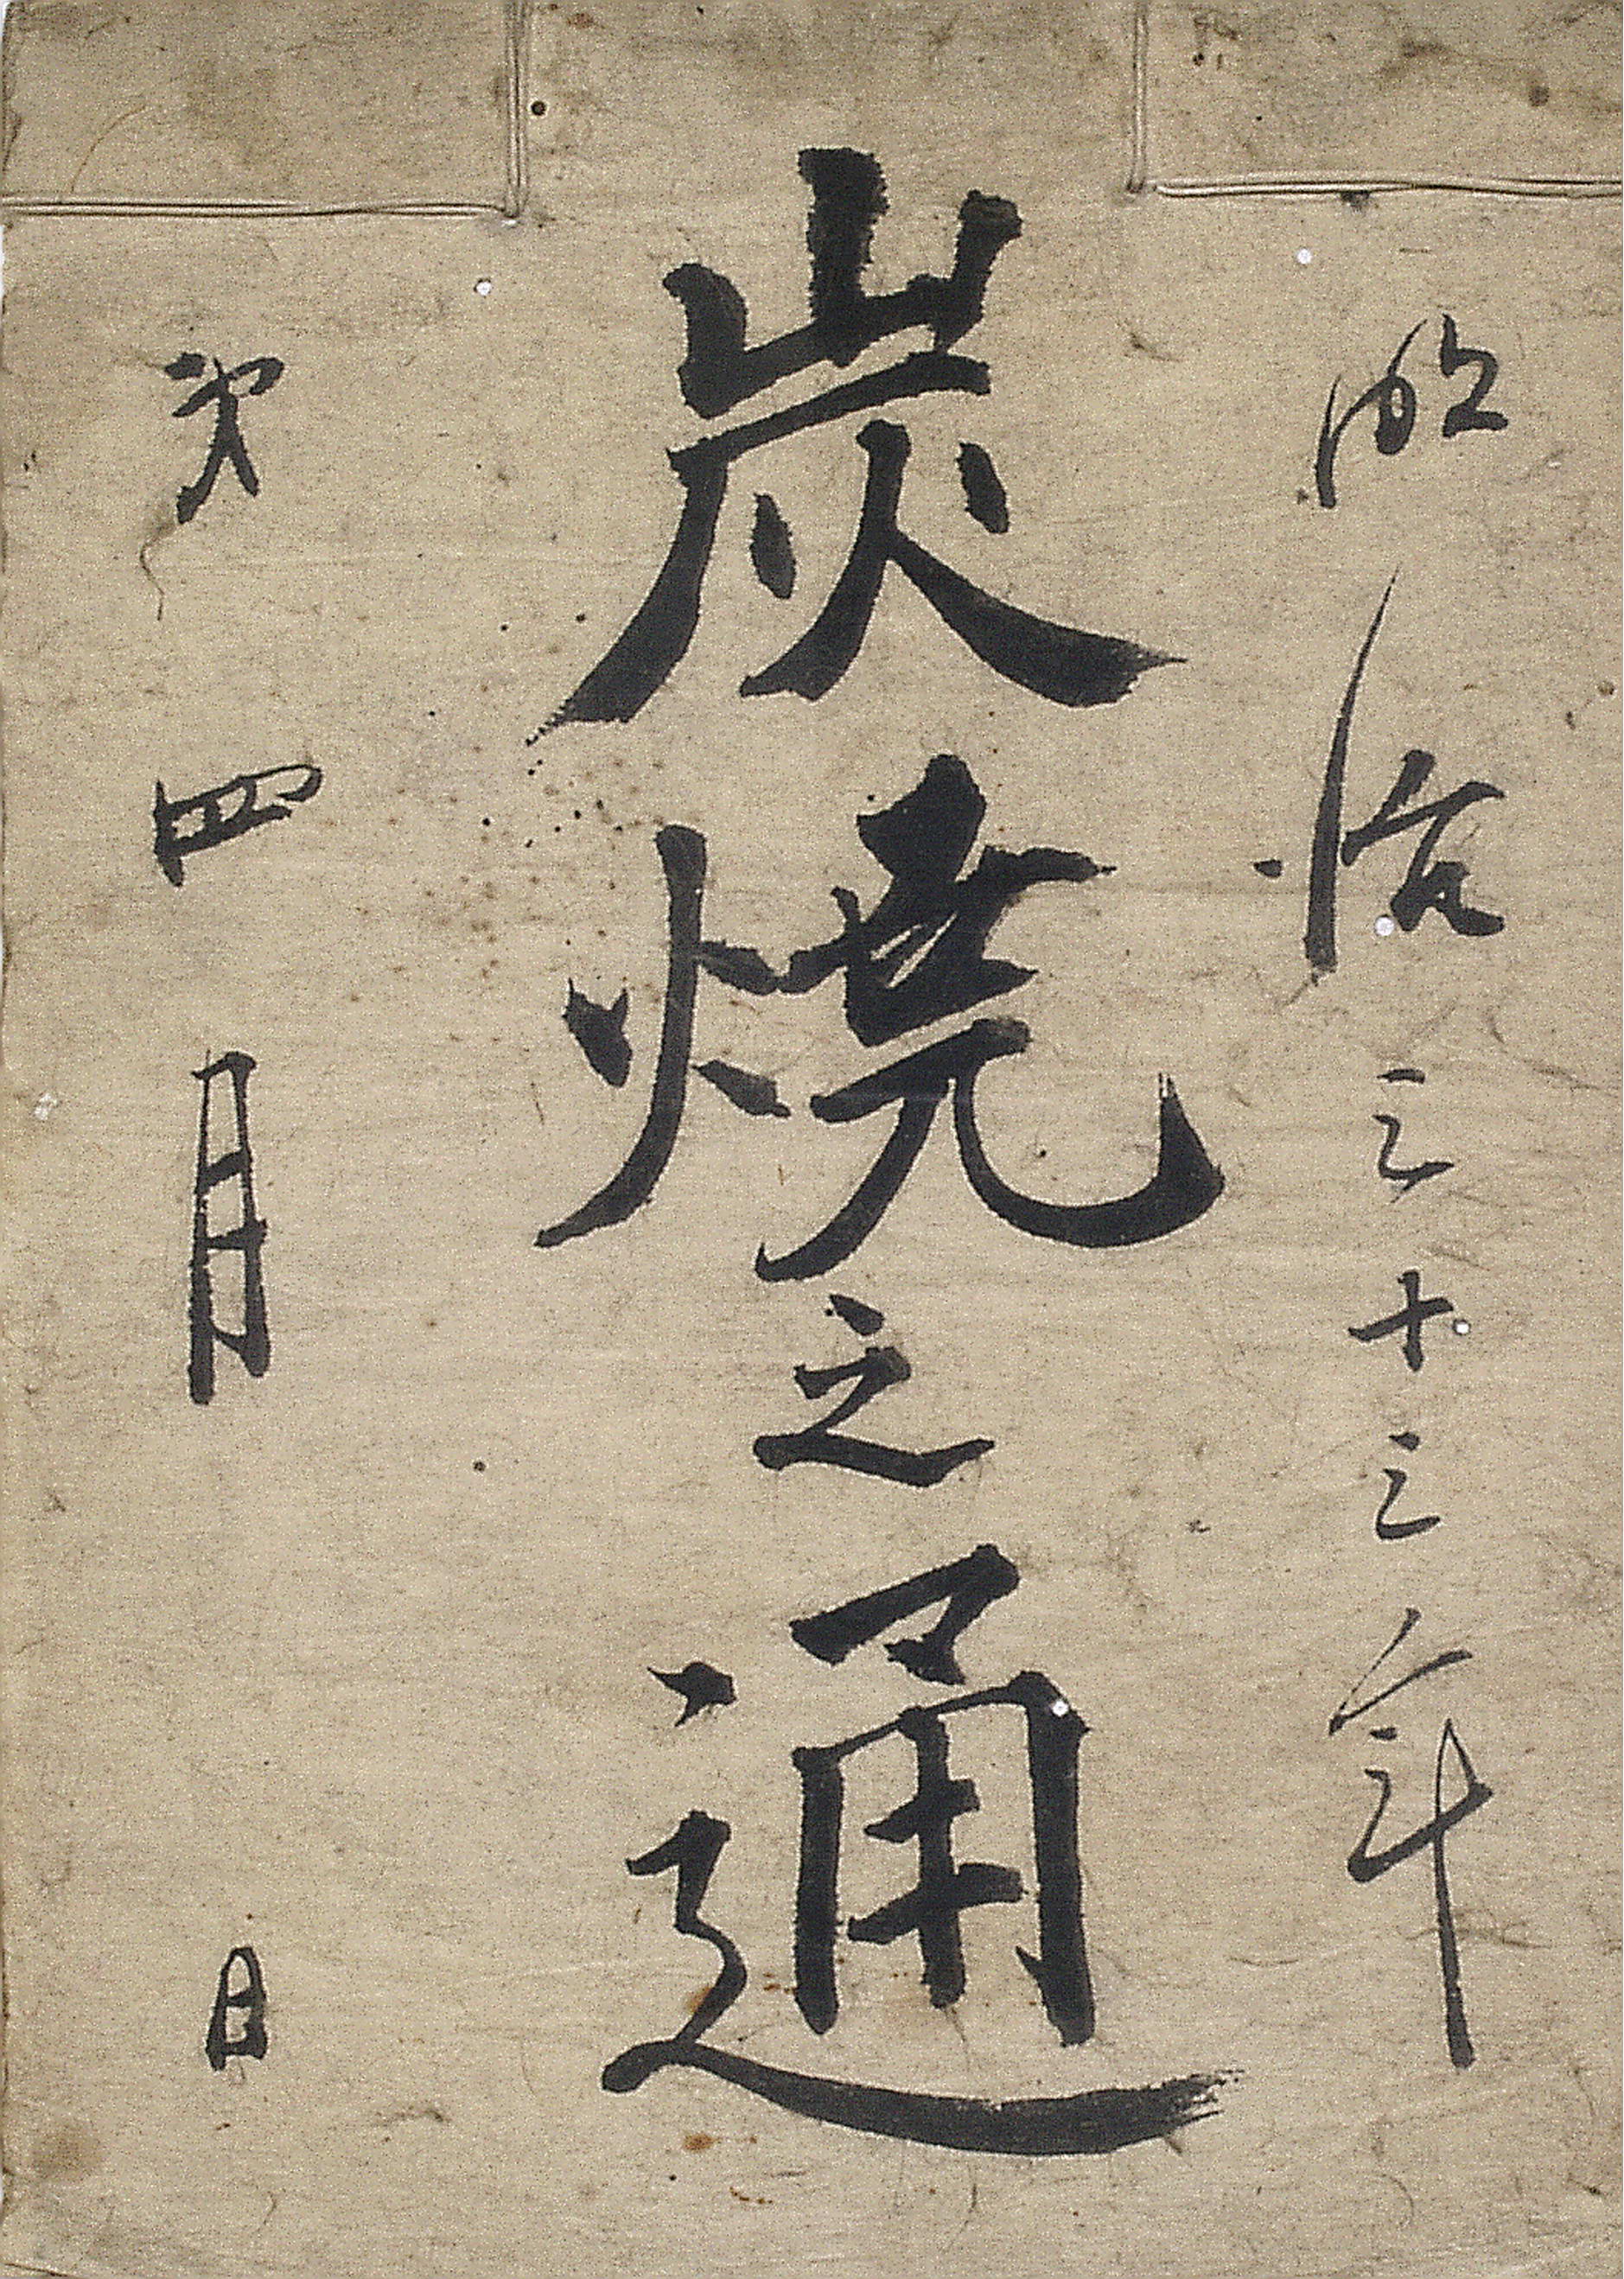 明治三十三年
炭焼之通
第四月 日